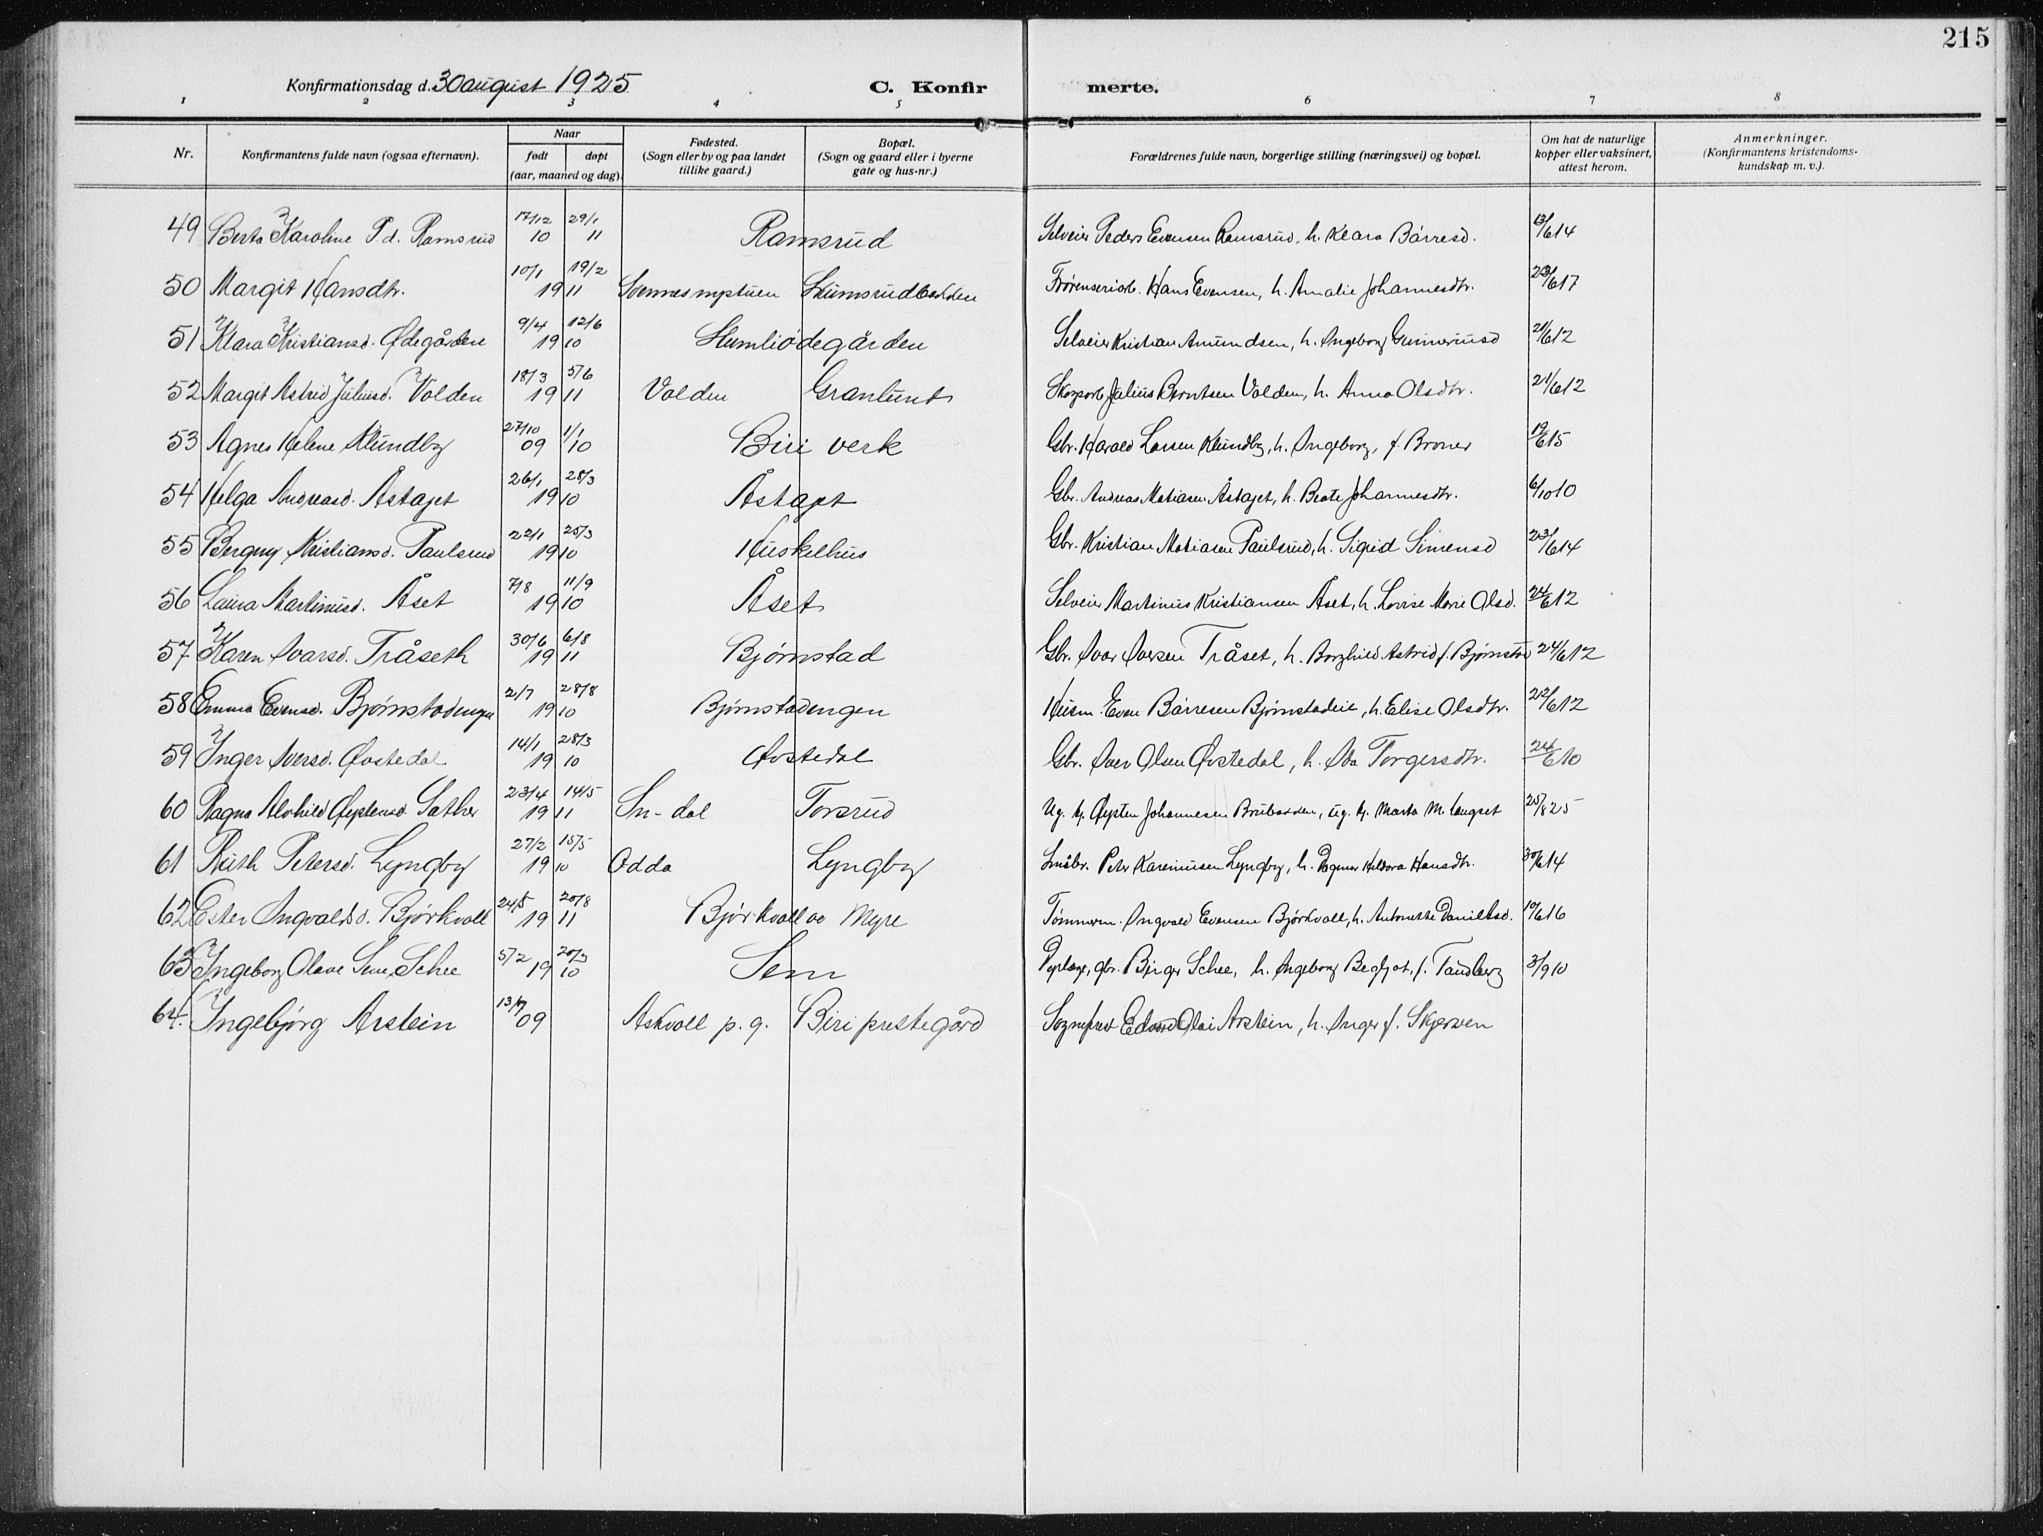 215
Konfirmationsdag d. 30 august 1925 C. Konfirmerte.
1 2 3 4 5 6 7 8
Nr. Konfirmantens fulde navn (ogsaa efternavn). Naar født døpt (aar, maaned og dag). Fødested. (Sogn eller by og paa landet tillike gaard.) Bopæl. (Sogn og gaard eller i byerne gate og hus-nr.) Forældrenes fulde navn, borgerlige stilling (næringsvei) og bopæl. Om hat de naturlige kopper eller vaksinert, attest herom. Anmerkninger. (Konfirmantens kristendoms-kundskap m. v.).
49 Berta Karoline P d. Ramsrud 17/12 10 29/1 11 Ramsrud Selveier Peder Evensen Ramsrud, h. Klara Børresd. 13/6 14
50 Margit Hansdtr. 10/1 19/2 1911 Hans Evensen, h. Amalie Johannesdtr. 23/6 17
51 Klara Kristiansd. Ødegården 9/4 12/6 1910 Humliødegården Selveier Kristian Amundsen, h. Ingeborg Gunneriusd 21/6 12
52 Margit Astrid Juliusd. Volden 18/3 5/6 1911 Volden Granlund Julius Berntsen Volden, h. Anna Olsdtr. 21/6 12
53 Agnes Helene Klundby 27/10 09 1/1 10 Biri verk Gbr. Harald Larsen Klundby, h. Ingeborg, f. Broner 19/6 15
54 Helga Andreasd. Åstajet 26/1 28/3 1910 Åstajet Gbr. Andreas Matiasen Åstajet, h. Beate Johannesdtr. 6/10 10
55 Bergny Kristiansd. Paulsrud 22/1 25/3 1910 Huskelhus Gbr. Kristian Matiasen Paulsrud, h. Sigrid Simensd 23/6 14
56 Laura Martinusd. Åset 7/8 11/9 1910 Åset Selveier Martinus Kristiansen Åset, h. Lovise Marie Olsd. 24/6 12
57 Karen Ivarsd. Tråseth 30/6 6/8 1911 Bjørnstad Gbr. Ivar Iversen Tråset, h. Borghild Astrid f. Bjørnstad 24/6 12
58 Emma Evensd. Bjørnstadengen 2/7 28/8 1910 Bjørnstadengen Husm. Even Børresen Bjørnstadeie, h. Elise Olsdtr. 22/6 12
59 Inger Iversd. Øvstedal 14/1 28/3 1910 Øvstedal Gbr. Iver Olsen Øvstedal, h. Ida Torgersdtr. 24/6 10
60 Ragna Alvhild Øystensd. Sather 23/4 14/5 1911 Sn-dal Torsrud Ug. Øysten Johannesen Brubakken, ug. Marta M. Laugset 25/8 25
61 Ruth Petersd. Lyngby 27/2 15/5 1910 Odda Lyngby Småbr. Peter Kareniusen Lyngby, h. Dagmar Hansdtr. 30/6 14
62 Ester Ingvaldsd. Bjørkvoll 24/5 20/8 1911 Bjørkvoll Myre Tømmerm. Ingvald Evensen Bjørkvoll, h. Antonette Danielsd. 10/6 16
63 Ingeborg Olave Sem Schee 5/2 20/3 1910 Sem Dyrlæge, gbr. Birger Schee, h. Ingeborg Bergljot, f. Tandberg 3/9 10
64. Ingebjørg Arstein 09 Askvoll p. g. Biri prestegård Sogneprest Edvard Olai Arstein, h. Inger f. Skjerven